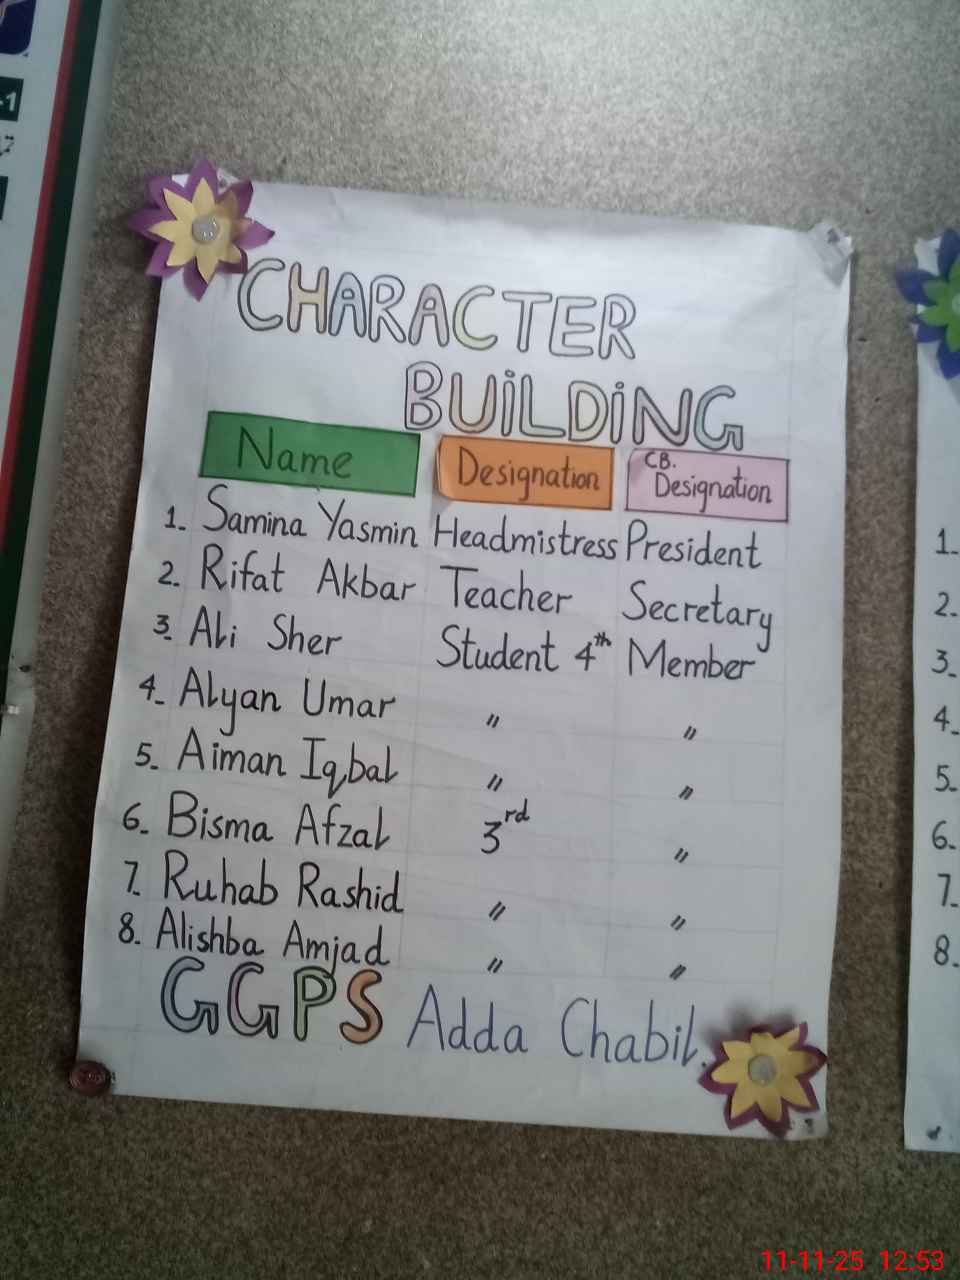 -1
CHARACTER
BUiLDiNG
Name Designation CB. Designation
1. Samina Yasmin Headmistress President
2. Rifat Akbar Teacher Secretary
3. Ali Sher Student 4th Member
4. Alyan Umar " "
5. Aiman Iqbal " "
6. Bisma Afzal 3rd "
7. Ruhab Rashid " "
8. Alishba Amjad " "
GGPS Adda Chabil.
1.
2.
3.
4.
5.
6.
7.
8.
11-11-25 12:53